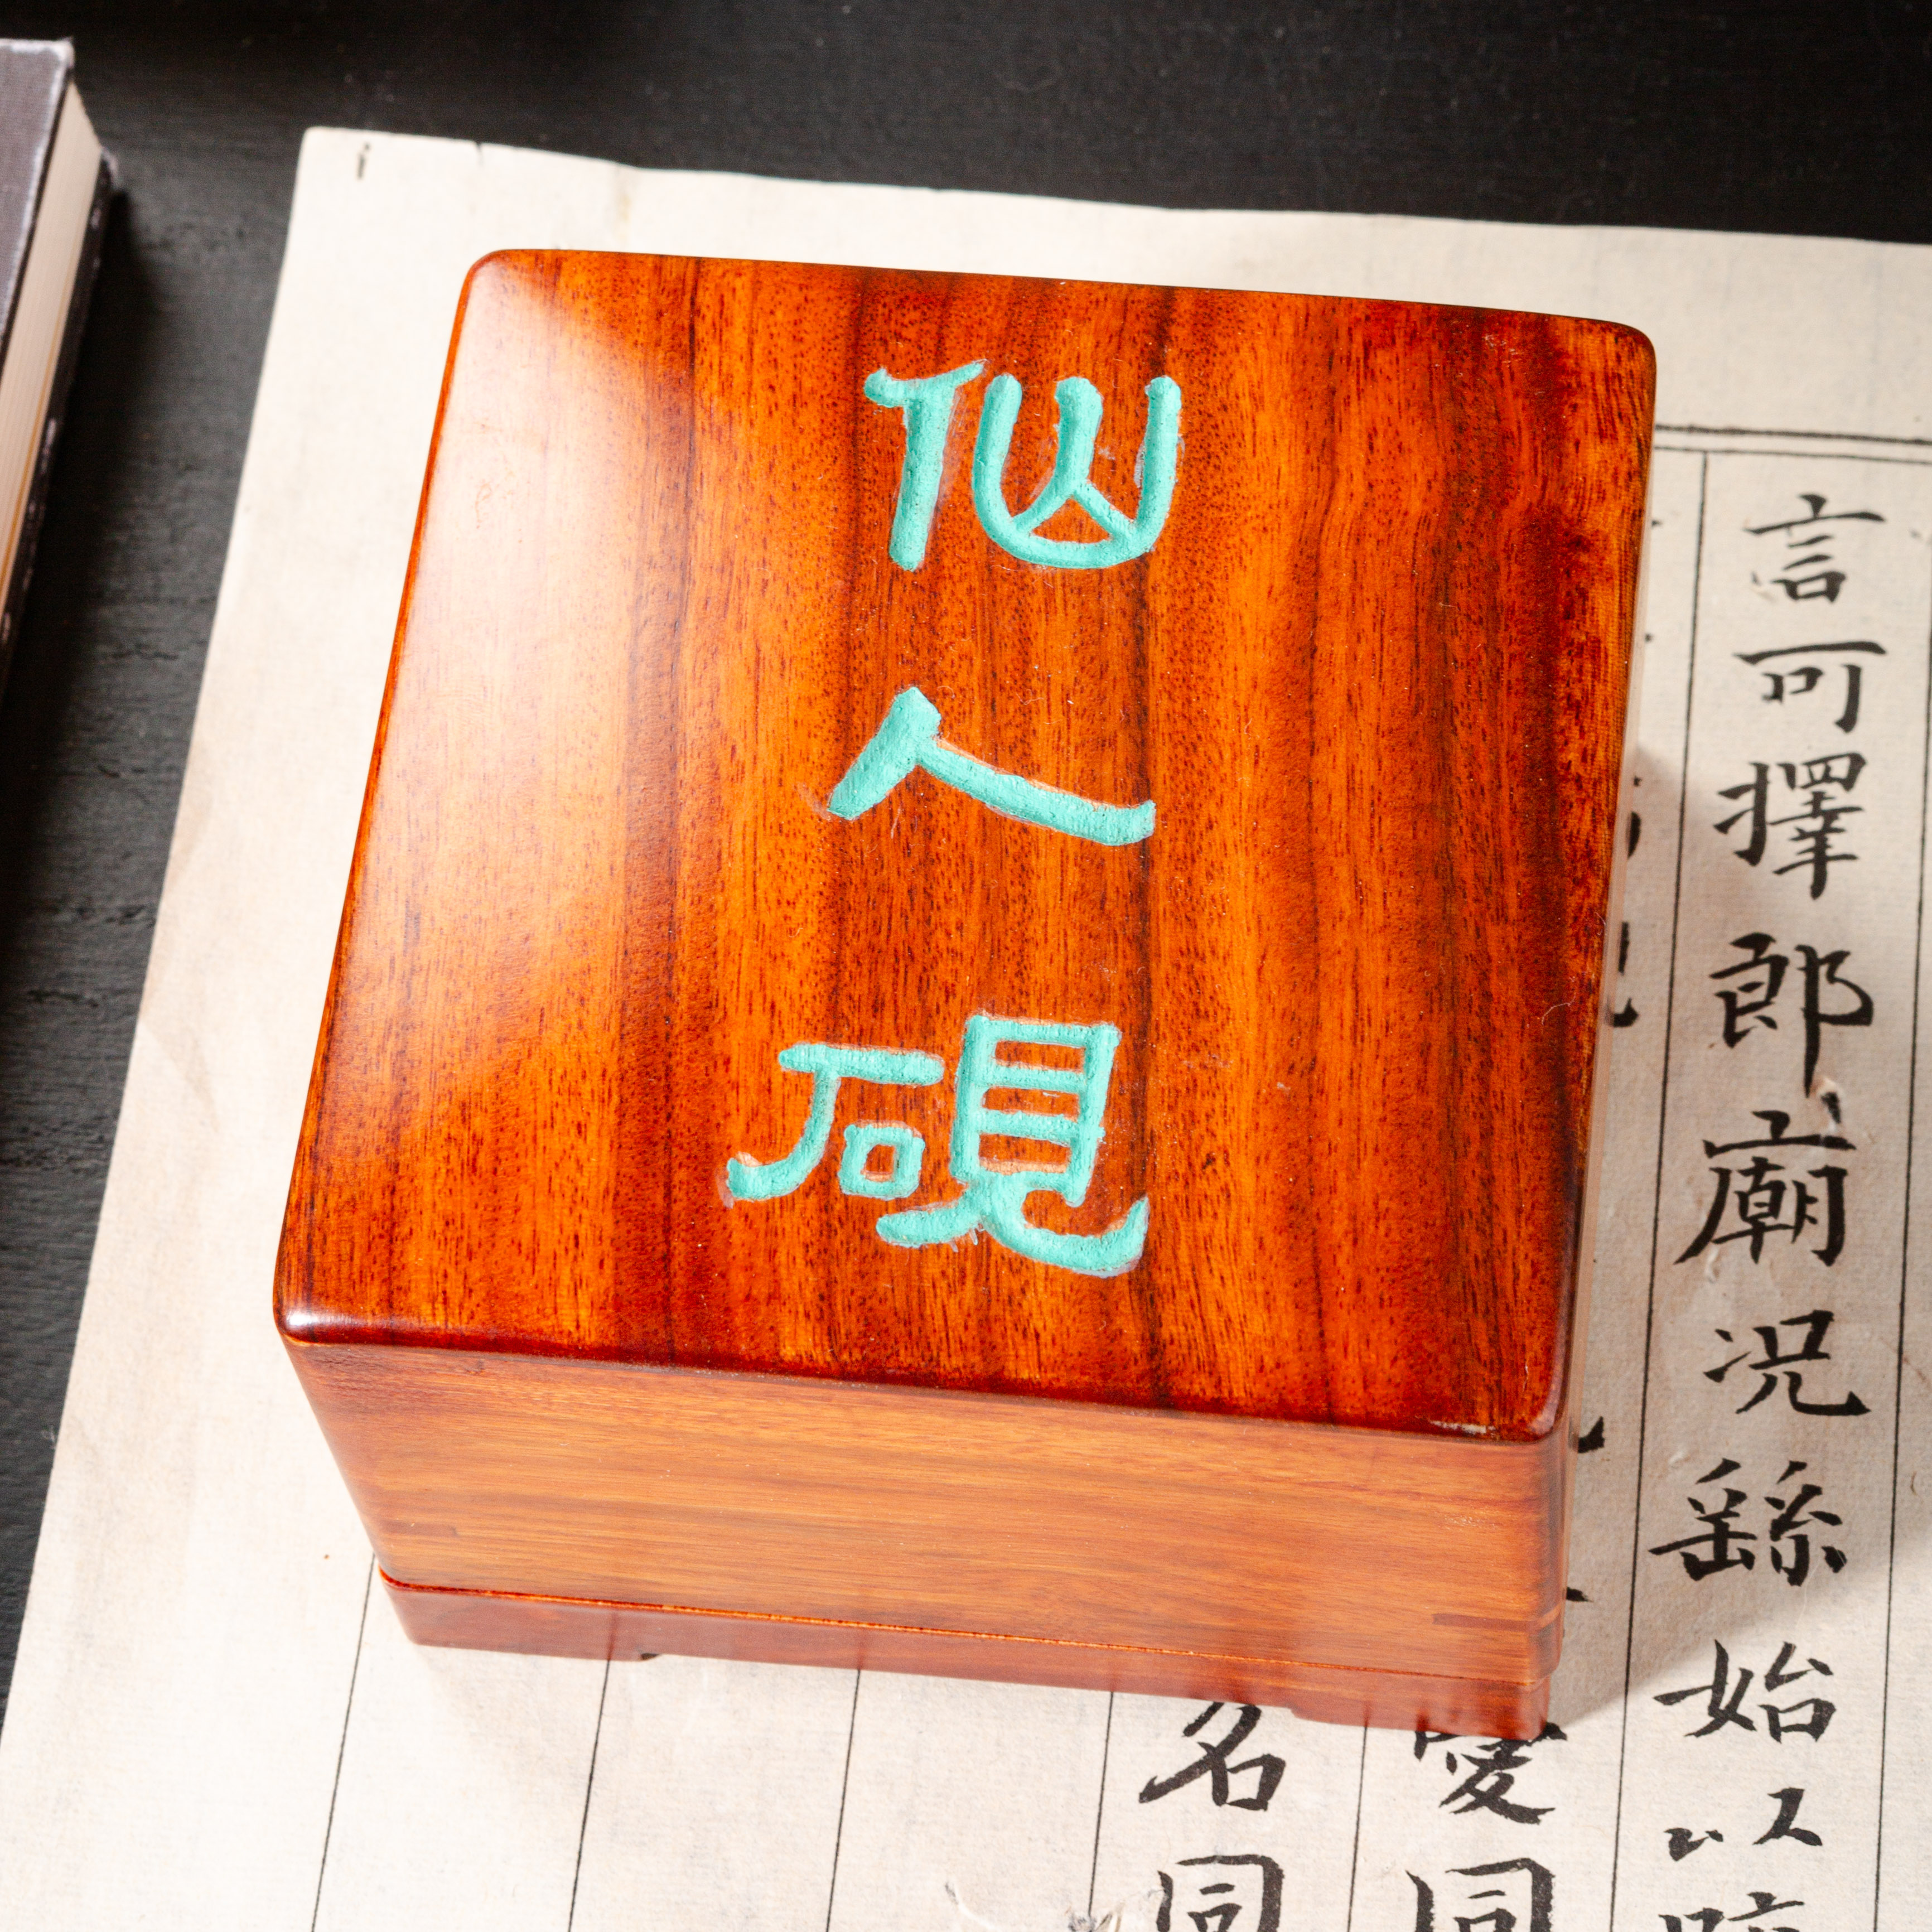 仙人硯
言可擇郎廟况繇始以
愛同
名同